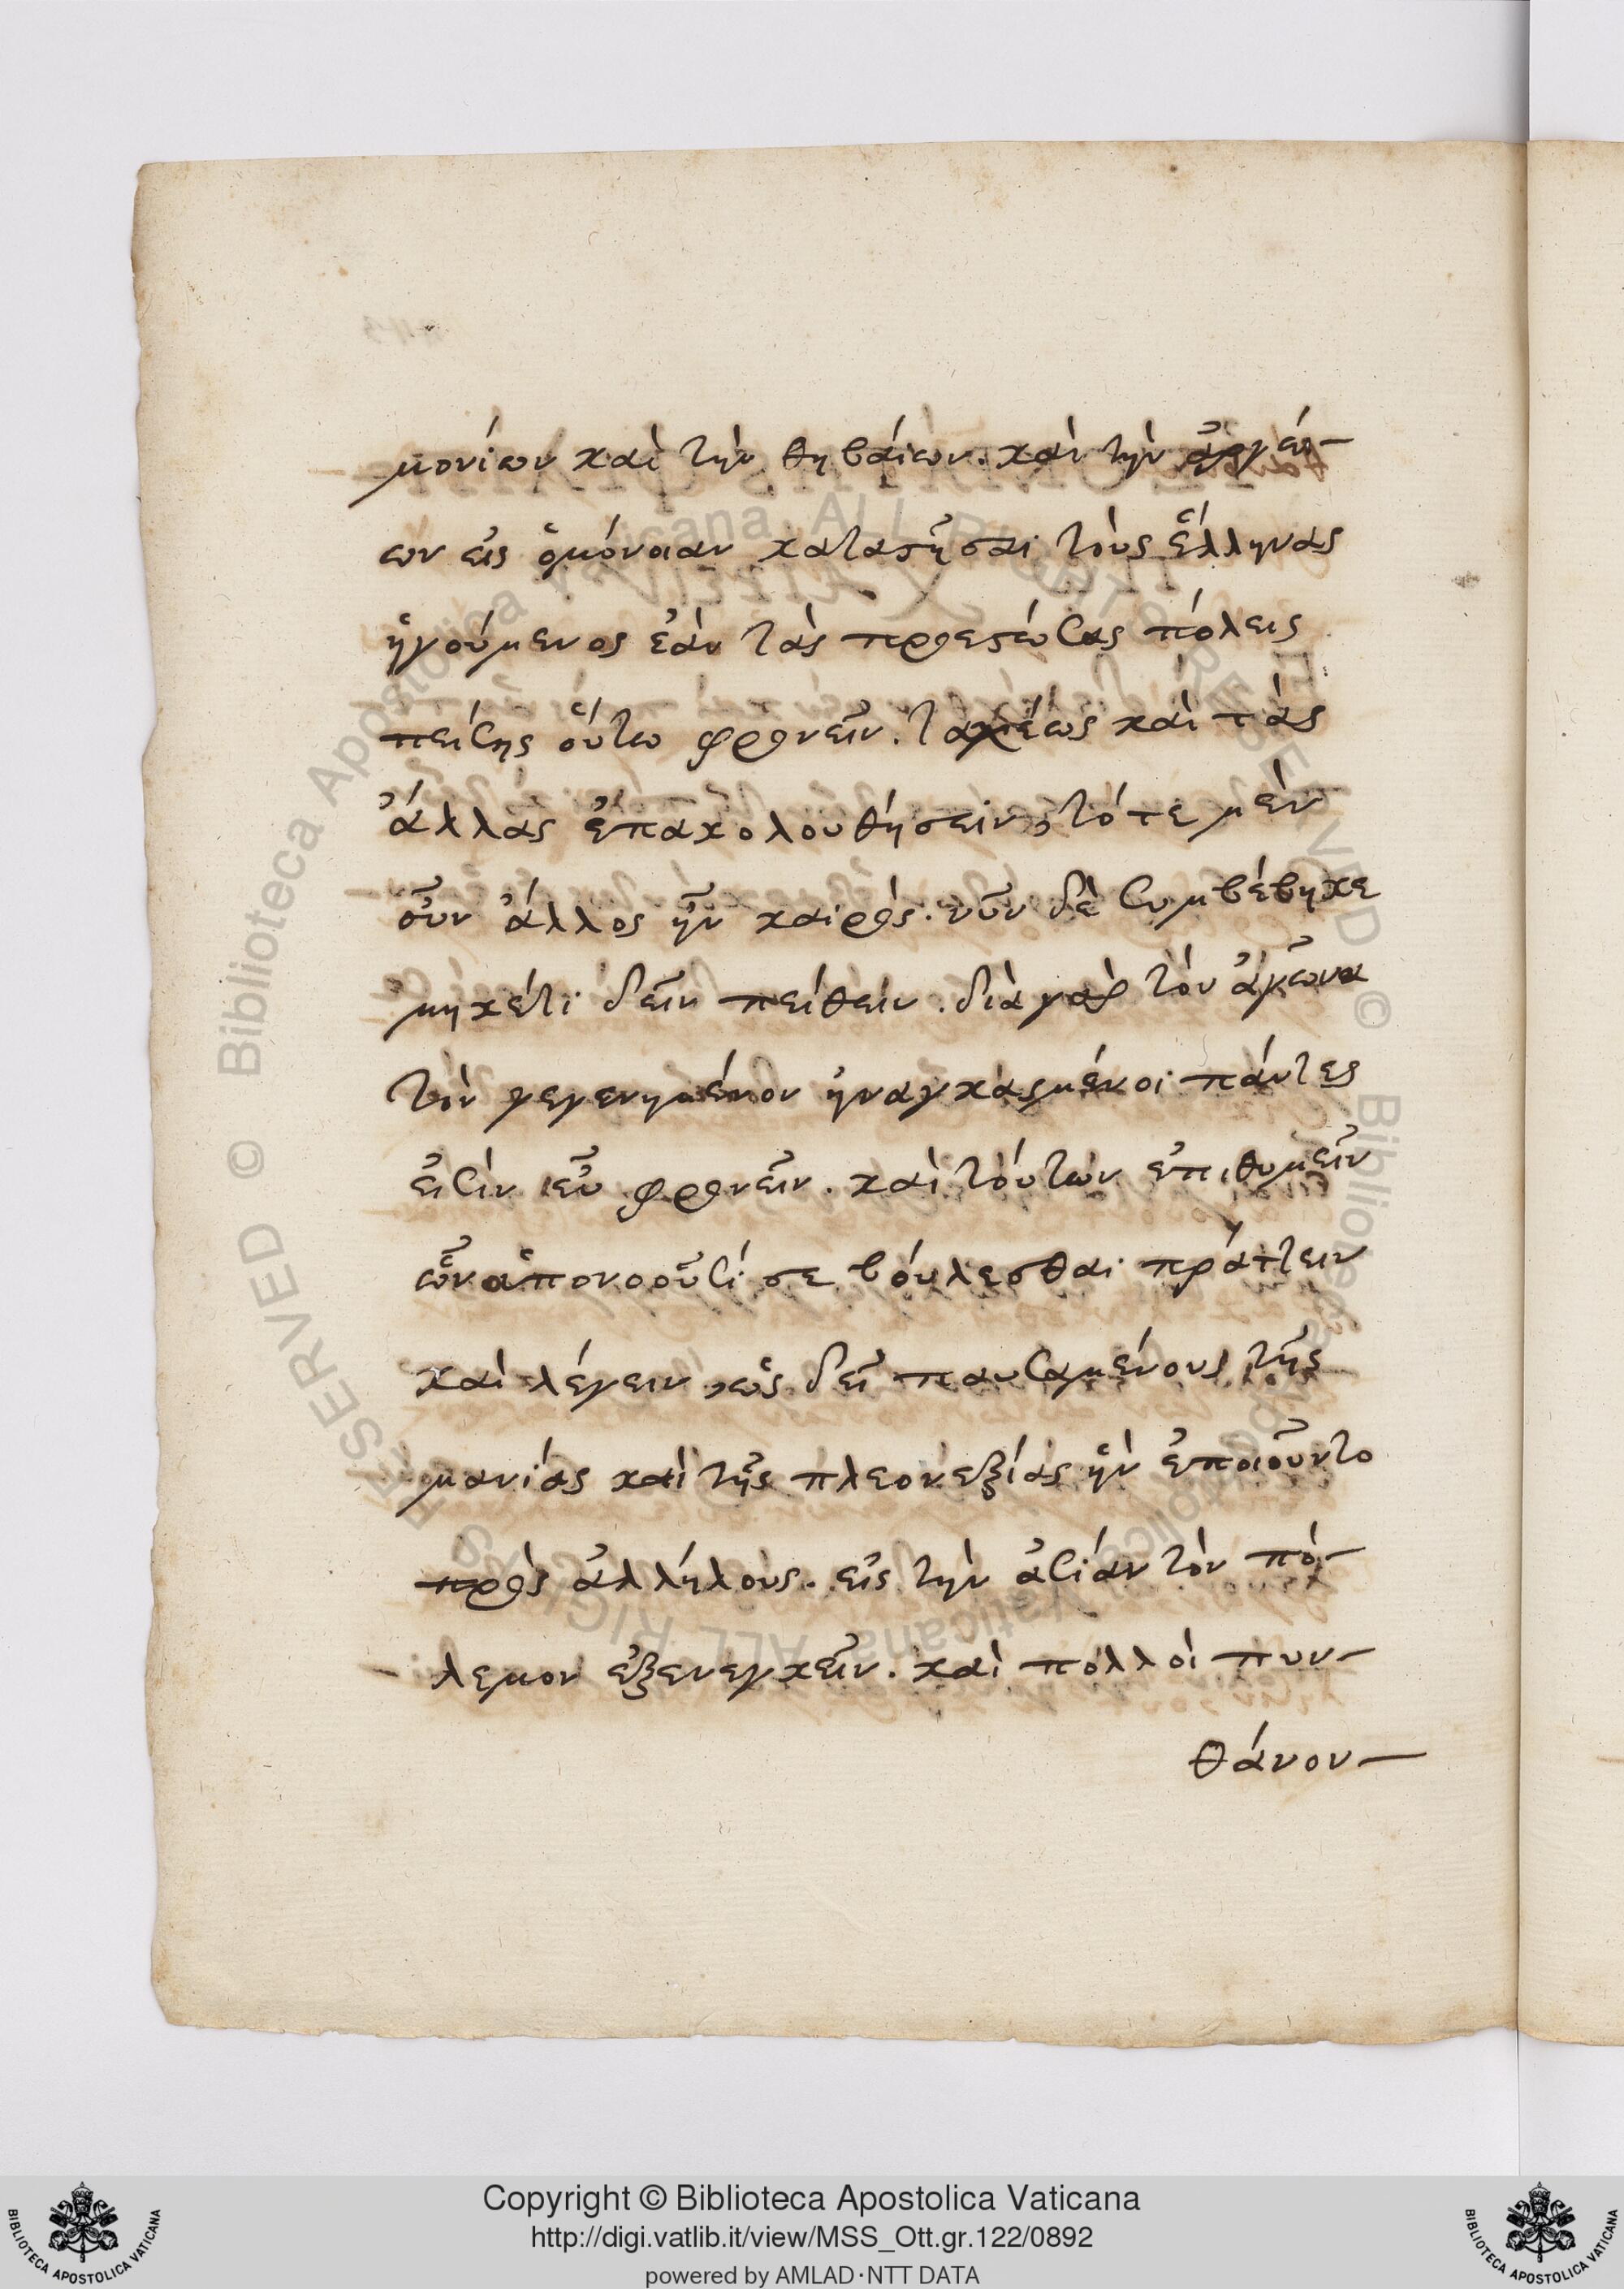 μονίων καὶ τὴν θηβαίων. καὶ τὴν ἀργεί-
ων εἰς ὁμόνοιαν καταστῆσαι τοὺς ἕλληνας
ἡγούμενος ἐὰν τὰς προεστώσας πόλεις
πείσης οὕτω φρονεῖν. ταχέως καὶ τὰς
ἄλλας ἐπακολουθήσειν, τότε μὲν
οὖν ἄλλος ἦν καιρός. νῦν δὲ συμβέβηκε
μηκέτι δεῖν πείθειν. διὰ γὰρ τὸν ἀγῶνα
τὸν γεγενημένον ἠναγκασμένοι πάντες
εἰσὶν εὖ φρονεῖν. καὶ τούτων ἐπιθυμεῖν
ὧν ὑπονοοῦσί σε βούλεσθαι πράττειν
καὶ λέγειν, ὡς δεῖ παυσαμένους τῆς
μανίας καὶ τῆς πλεονεξίας ἣν ἐποιοῦντο
πρὸς ἀλλήλους. εἰς τὴν ἀσίαν τὸν πό-
λεμον ἐξενεγκεῖν. καὶ πολλοὶ πυν-
θάνον-
Copyright © Biblioteca Apostolica Vaticana
http://digi.vatlib.it/view/MSS_Ott.gr.122/0892
powered by AMLAD·NTT DATA
BIBLIOTECA APOSTOLICA VATICANA
BIBLIOTECA APOSTOLICA VATICANA